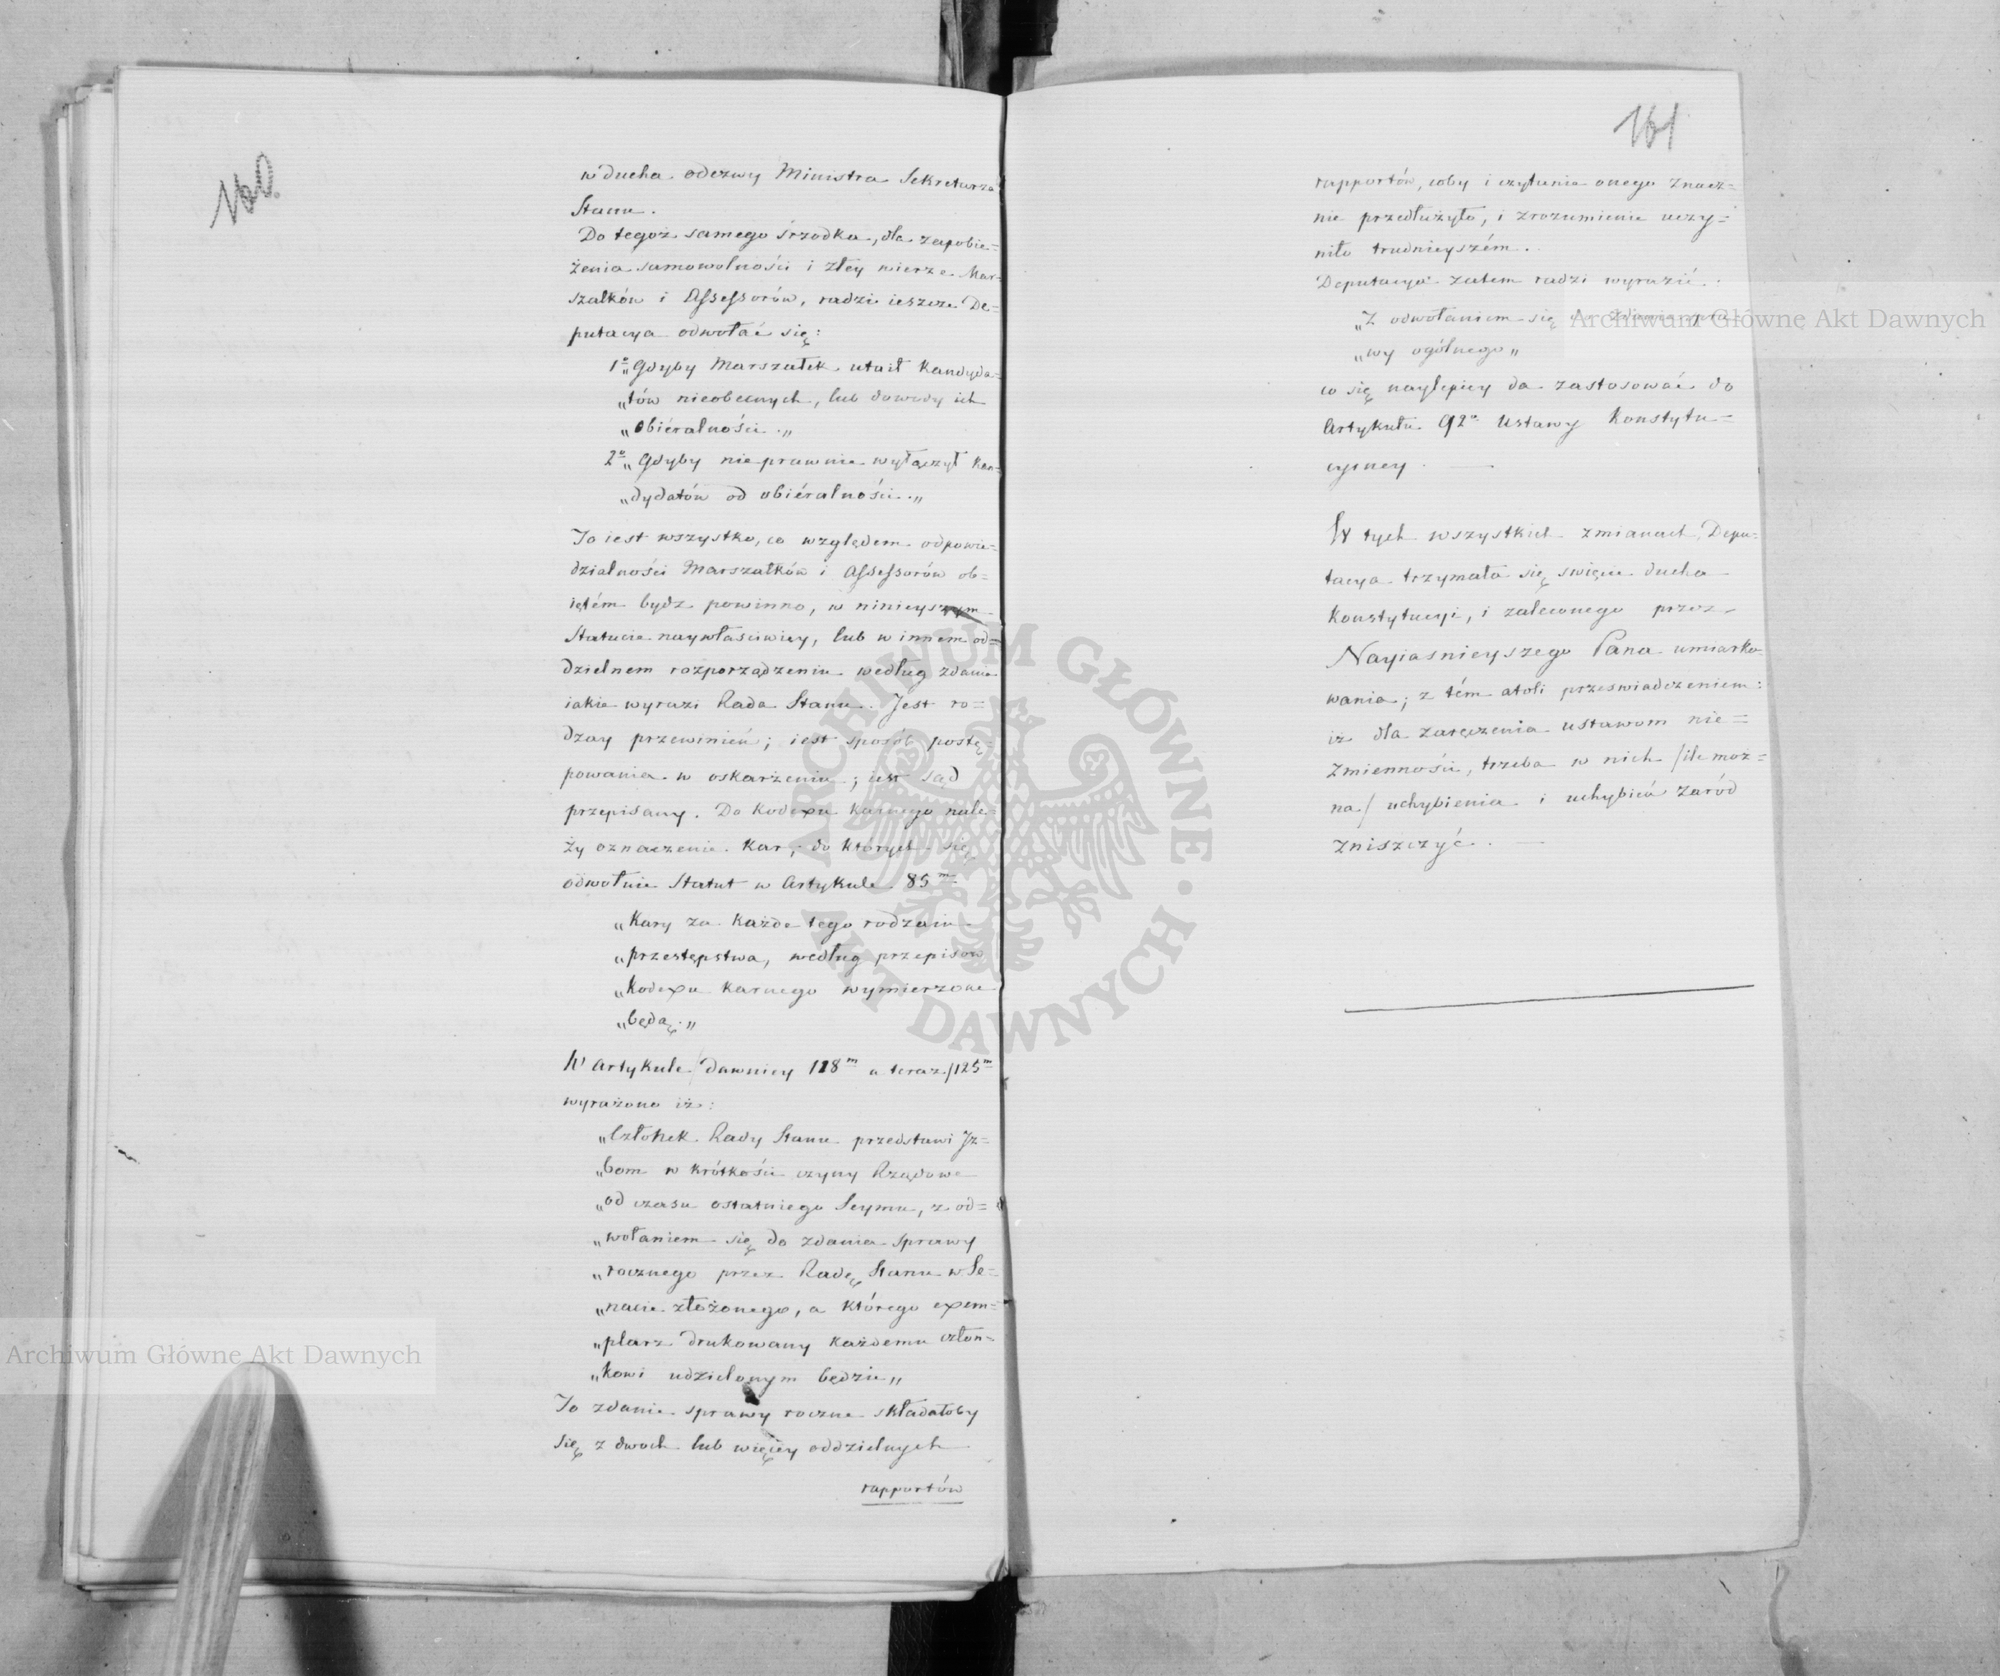 160.
w ducha odezwy Ministra Sekretarza
Stanu.
Do tegoż samego śrzodka, dla zapobie=
żenia samowolności i złey wierze Mar=
szałków i Assessorów, radzi ieszcze De=
putacya odwołać się:
1o „Gdyby Marszałek utaił Kandyda=
„tów nieobecnych, lub dowody ich
„obiéralności.„
2o „Gdyby nieprawnie wyłączył Kan=
„dydatów od obiéralności.„
To iest wszystko, co względem odpowie=
dzialności Marszałków i Assessorów ob=
iętém bydz powinno, w ninieyszym
Statucie naywłaściwiey, lub w innem od=
dzielnem rozporządzeniu według zdania
iakie wyrazi Rada Stanu. Jest ro=
dzay przewinień; iest sposób postę=
powania w oskarżeniu; iest sąd
przepisany. Do Kodexu Karnego nale=
ży oznaczenie Kar, do których się
odwołuie Statut w Artykule 85m
„Kary za każde tego rodzaiu
„przestępstwa, według przepisów
„Kodexu Karnego wymierzone
„będą.„
W Artykule /dawniey 118m a teraz/ 125m
wyrażono iż:
„Członek Rady Stanu przedstawi Jz=
„bom w krótkości czyny Rządowe
„od czasu ostatniego Seymu, z od=
„wołaniem się do zdania sprawy
„rocznego przez Radę Stanu w Se=
„nacie złożonego, a którego exem=
„plarz drukowany każdemu człon=
„kowi udzielonym będzie„
To zdanie sprawy roczne składałoby
się z dwóch lub więcéy oddzielnych
rapportów
161
rapportów, coby i czytanie onego znacz=
nie przedłużyło, i zrozumienie uczy=
niło trudnieyszém.
Deputacya zatem radzi wyrazić.
„Z odwołaniem się do zdania spra=
„wy ogólnego„
co się naylepiey da zastosować do
Artykułu 92o Ustawy Konstytu=
cyiney.
W tych wszystkich zmianach, Depu=
tacya trzymała się święcie ducha
Konstytucyi, i zaleconego przez
Nayiasnieyszego Pana umiarko=
wania; z tém atoli przeswiadczeniem:
iż dla zaręczenia ustawom nie=
zmienności, trzeba w nich /ile moż=
na/ uchybienia i uchybień zaród
zniszczyć.
Archiwum Główne Akt Dawnych
Archiwum Główne Akt Dawnych
ARCHIWUM GŁÓWNE AKT DAWNYCH